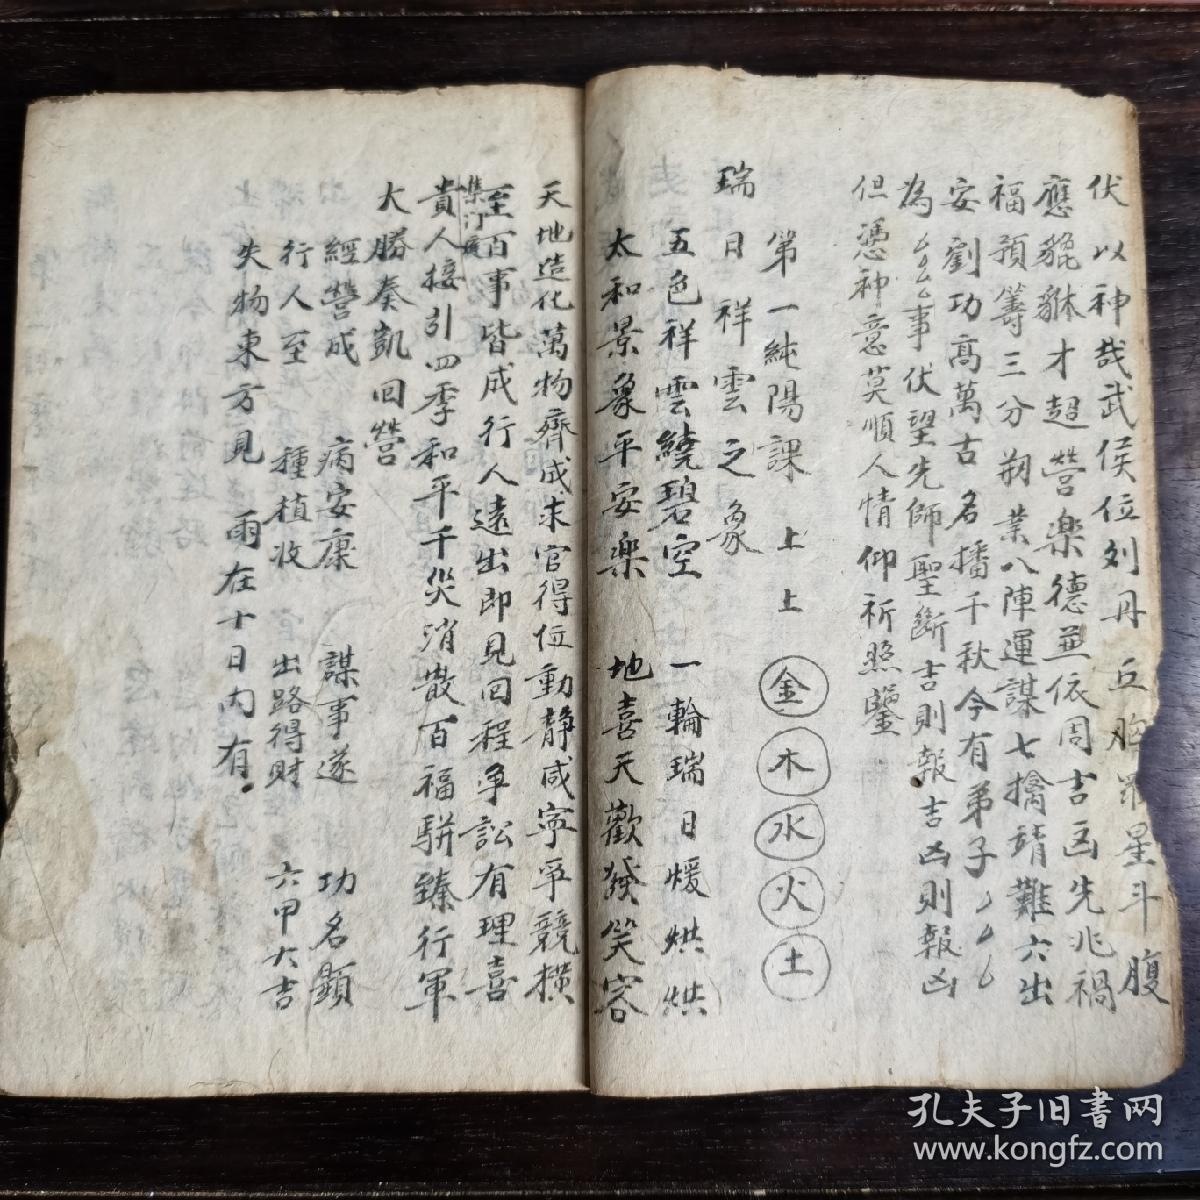 伏以神哉武侯位列丹丘胸羅星斗腹
應貔貅才超營樂德並依周吉凶先兆禍
福預籌三分剏業八陣運謀七擒靖難六出
安劉功高萬古名播千秋今有弟子ムムム
為ムムム事伏望先師聖斷吉則報吉凶則報凶
但憑神意莫順人情仰祈照鑒
第一純陽課 上上 金木水火土
瑞日祥雲之象
五色祥雲繞碧空 一輪瑞日煖烘烘
太和景象平安樂 地喜天歡發笑容
天地造化萬物齊成求官得位動静咸寧爭競橫
至百事皆成行人遠出即見回程爭訟有理喜
集
貴人接引四季和平千災消散百福駢臻行軍
大勝奏凱回營
經營成 病安康 謀事遂 功名顯
行人至 種植收 出路得財 六甲大吉
失物東方見 雨在十日内有
孔夫子旧书网
www.kongfz.com